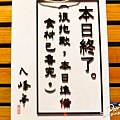 本日終了。
(很抱歉,本日準備
食材已售完。)
八幡平